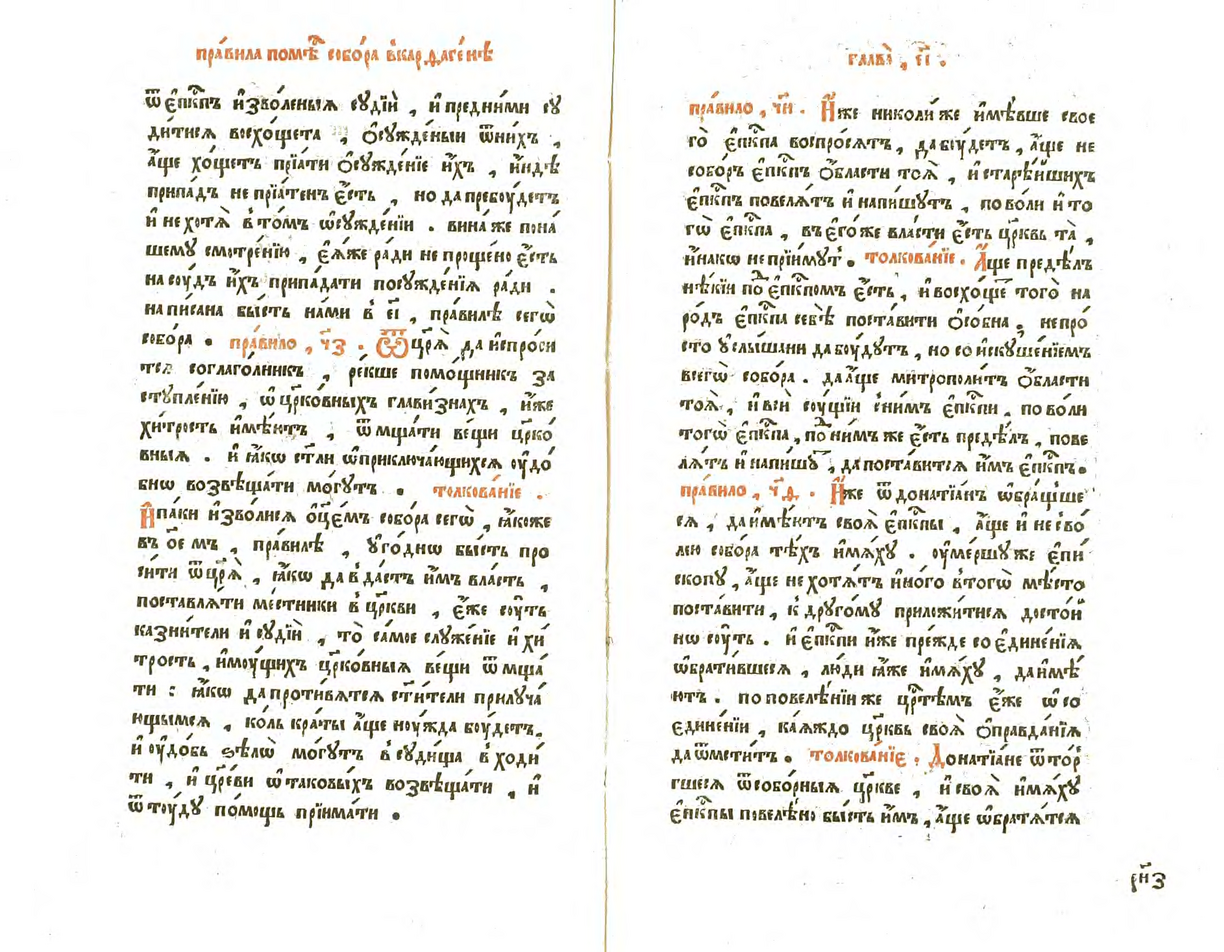 пра́вила помѣ́ⷭ собо́ра вкарѳаге́нѣ
ѿ є҆пкⷭпъ и҆зво́леныѧ сꙋдїѝ , и҆ предни́ми сꙋ
ди́тисѧ восхо́щета , ѻ҆сꙋжде́ныи ѿни́хъ ,
а҆́ще хо́щетъ прїѧ́ти ѻ҆сꙋжде́нїе и҆́хъ , и҆́ндѣ
припа́дъ не прїѧ́тенъ є҆́сть , но да пребоу́детъ
и҆ не хотѧ̀ в то́мъ ѡ҆сꙋжде́нїи . вина́ же пона́
шемꙋ смотре́нїю , є҆ѧ́же ра́ди не проще́но є҆́сть
на соу́дъ и҆́хъ припа́дати посꙋжде́нїѧ ра́ди .
написана бы́сть на́ми в҆ є҃і , пра́вилѣ сегѡ̀
собо́ра . пра́вило , ч҃з . Ѿ цр҃ѧ̀ да и҆спроси
тсѧ согла́голникъ , ре́кше помо́щникъ за
стꙋпле́нїю , ѡ҆ цр҃ко́вныхъ главизнахъ , и҆́же
хи́трость и҆мѣ́ютъ , ѿмща́ти ве́щи цр҃ко́
вныѧ . и҆ ꙗ҆́кѡ ст҃ли ѡ҆приключа́ющихсѧ оу҆до́
бнѡ возвѣща́ти мо́гꙋтъ . толкова́нїе .
И҆ па́ки и҆зво́лисѧ ѻ҆ц҃е́мъ собо́ра сегѡ̀ , ꙗ҆́коже
въ ѻ҆се мъ , пра́вилѣ , ᲂу҆го́днѡ бы́сть про
си́ти ѿ цр҃ѧ̀ , ꙗ҆́кѡ да в҆да́стъ и҆̀мъ вла́сть ,
поставлѧ́ти ме́стники в҆ цр҃кви , є҆́же соу́ть
казни́тели и҆ сꙋдїѝ , то̀ са́мое слꙋже́нїе и҆ хи́
трость , и҆моу́щихъ цр҃ко́вныѧ ве́щи ѿмща́
ти : ꙗ҆́кѡ да проти́вѧтсѧ ст҃и́тели прилꙋча́
ющымсѧ , ко́ль кра́ты а҆́ще ноу́жда боу́детъ .
и҆ оу҆до́бь ѕѣлѡ̀ мо́гꙋтъ в҆ сꙋди́ща в҆ходи́
ти , и҆ цр҃е́ви ѡ҆ такови́хъ возвѣща́ти , и҆
ѿтоу́дꙋ по́мощь прїима́ти .
глава̀ , є҃і .
пра́вило , ч҃и . И҆́же николи́ же и҆мѣ́вше свое
го̀ є҆пкⷭпа воспро́сѧтъ , да боу́детъ , а҆́ще не
собо́ръ є҆пкⷭпъ ѻ҆́бласти тоѧ̀ , и҆ старѣ́йшихъ
є҆пкⷭпъ повелѧ́тъ и҆ напи́шꙋтъ , по во́ли и҆ то
гѡ̀ є҆пкⷭпа , въ є҆гѡ́же вла́сти є҆́сть цр҃квь та̀ ,
и҆на́кѡ не прїи́мꙋт . толкова́нїе . А҆́ще предѣ́лъ
нѣ́кїи поⷣ є҆пкⷭпомъ є҆́сть , и҆ восхо́щеⷮ того̀ на
ро́дъ є҆пкⷭпа себѣ̀ поста́вити ѻ҆со́бна . непро́
сто ᲂу҆слы́шани да боу́дꙋтъ , но со и҆скꙋше́нїемъ
всегѡ̀ собо́ра . да а҆́ще митрополи́тъ ѻ҆́бласти
тоѧ̀ , и҆ всѝ соу́щїи сни́мъ є҆пкⷭпи , по во́ли
тогѡ̀ є҆пкⷭпа , поⷣ ни́мъ же є҆́сть предѣ́лъ , пове
лѧ́тъ и҆ напи́шꙋⷮ , да поста́витсѧ и҆̀мъ є҆пкⷭпъ .
пра́вило , ч҃ѳ . И҆́же ѿ донатїа́нъ ѡ҆бра́щше
сѧ , да и҆мѣ́ютъ своѧ̀ є҆пкⷭпы , а҆́ще и҆ не сво́
лею собо́ра тѣ́хъ и҆мѧ́хꙋ . оу҆ме́ршꙋ же є҆пи́
скопꙋ , а҆́ще не хотѧ́тъ и҆но́го втогѡ̀ мѣ́сто
поста́вити , к҆ дрꙋго́мꙋ приложи́тисѧ досто́й
нѡ соу́ть . и҆ є҆пкⷭпи и҆́же пре́жде соєдине́нїѧ
ѡ҆брати́вшесѧ , лю́ди ꙗ҆́же и҆мѧ́хꙋ , да и҆мѣ́
ютъ . по повелѣ́нїи же црⷭ҇тѣмъ є҆́же ѡ҆ со
єдине́нїи , ка́ѧждо цр҃квь своѧ̀ ѻ҆правда́нїѧ
да ѿмети́тъ . толкова́нїе . Донатїа́не ѿто́р
гшесѧ ѿ собо́рныѧ цр҃кве , и҆ своѧ̀ и҆мѧ́хꙋ
є҆пкⷭпы повелѣ́но бы́сть и҆̀мъ , а҆́ще ѡ҆братѧ́тсѧ
рн҃з